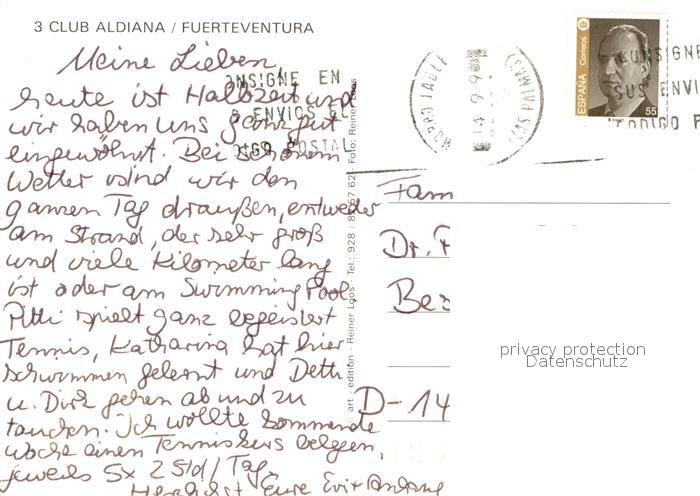 3 CLUB ALDIANA / FUERTEVENTURA
Meine Lieben
heute ist Halbzeit und
wir haben uns ganz gut
eingewöhnt. Bei schönem
Wetter sind wir den
ganzen Tag draußen, entweder
am Strand, der sehr groß
und viele Kilometer lang
ist oder am Swimming Pool
Pitti spielt ganz begeistert
Tennis, Katharina hat hier
schwimmen gelernt und Detti
u. Dirk gehen ab und zu
tauchen. Ich wollte kommende
Woche einen Tenniskurs belegen,
jeweils 5x 2 Std/Tag.
Herzlichst Eure Evi +
NSIGNE EN
ENVIOS EL
POSTAL
art edition - Reiner Loos - Tel.: 928 / Foto: Reiner Loos
MORRO JABLE
14 9 9
(LAS PALMAS)
ESPAÑA Correos
55
CONSIGNE
SUS ENVIOS
CODIGO P
Fam
Dr.
Be
D-14
privacy protection
Datenschutz